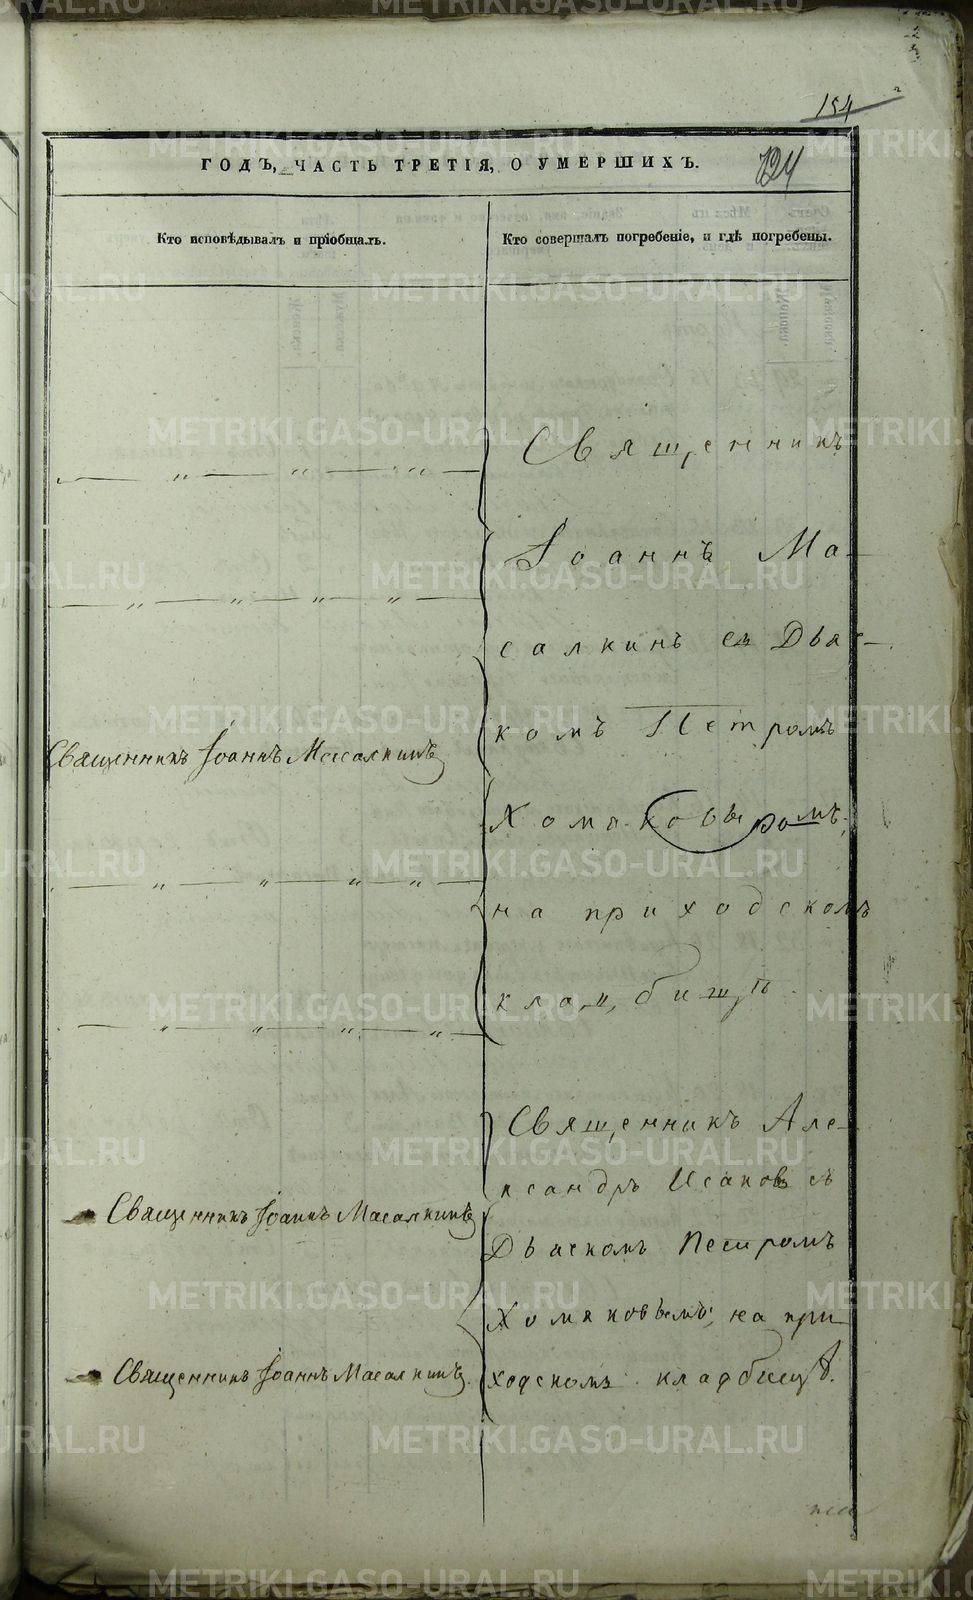 154
ГОДЪ, ЧАСТЬ ТРЕТІЯ, О УМЕРШИХЪ.
124
Кто исповѣдывалъ и пріобщалъ.
Кто совершалъ погребеніе, и гдѣ погребены.
Священникъ
Іоаннъ Ма-
салкинъ съ Дьяч-
комъ Петромъ
Хомяковымъ,
на приходскомъ
кладбищѣ.
Священникъ Іоаннъ Масалкинъ
Священникъ Але-
ксандръ Исаковъ съ
Дьячкомъ Петромъ
Хомяковымъ, на при-
ходскомъ кладбищѣ.
Священникъ Іоаннъ Масалкинъ
Священникъ Іоаннъ Масалкинъ.
METRIKI.GASO-URAL.RU